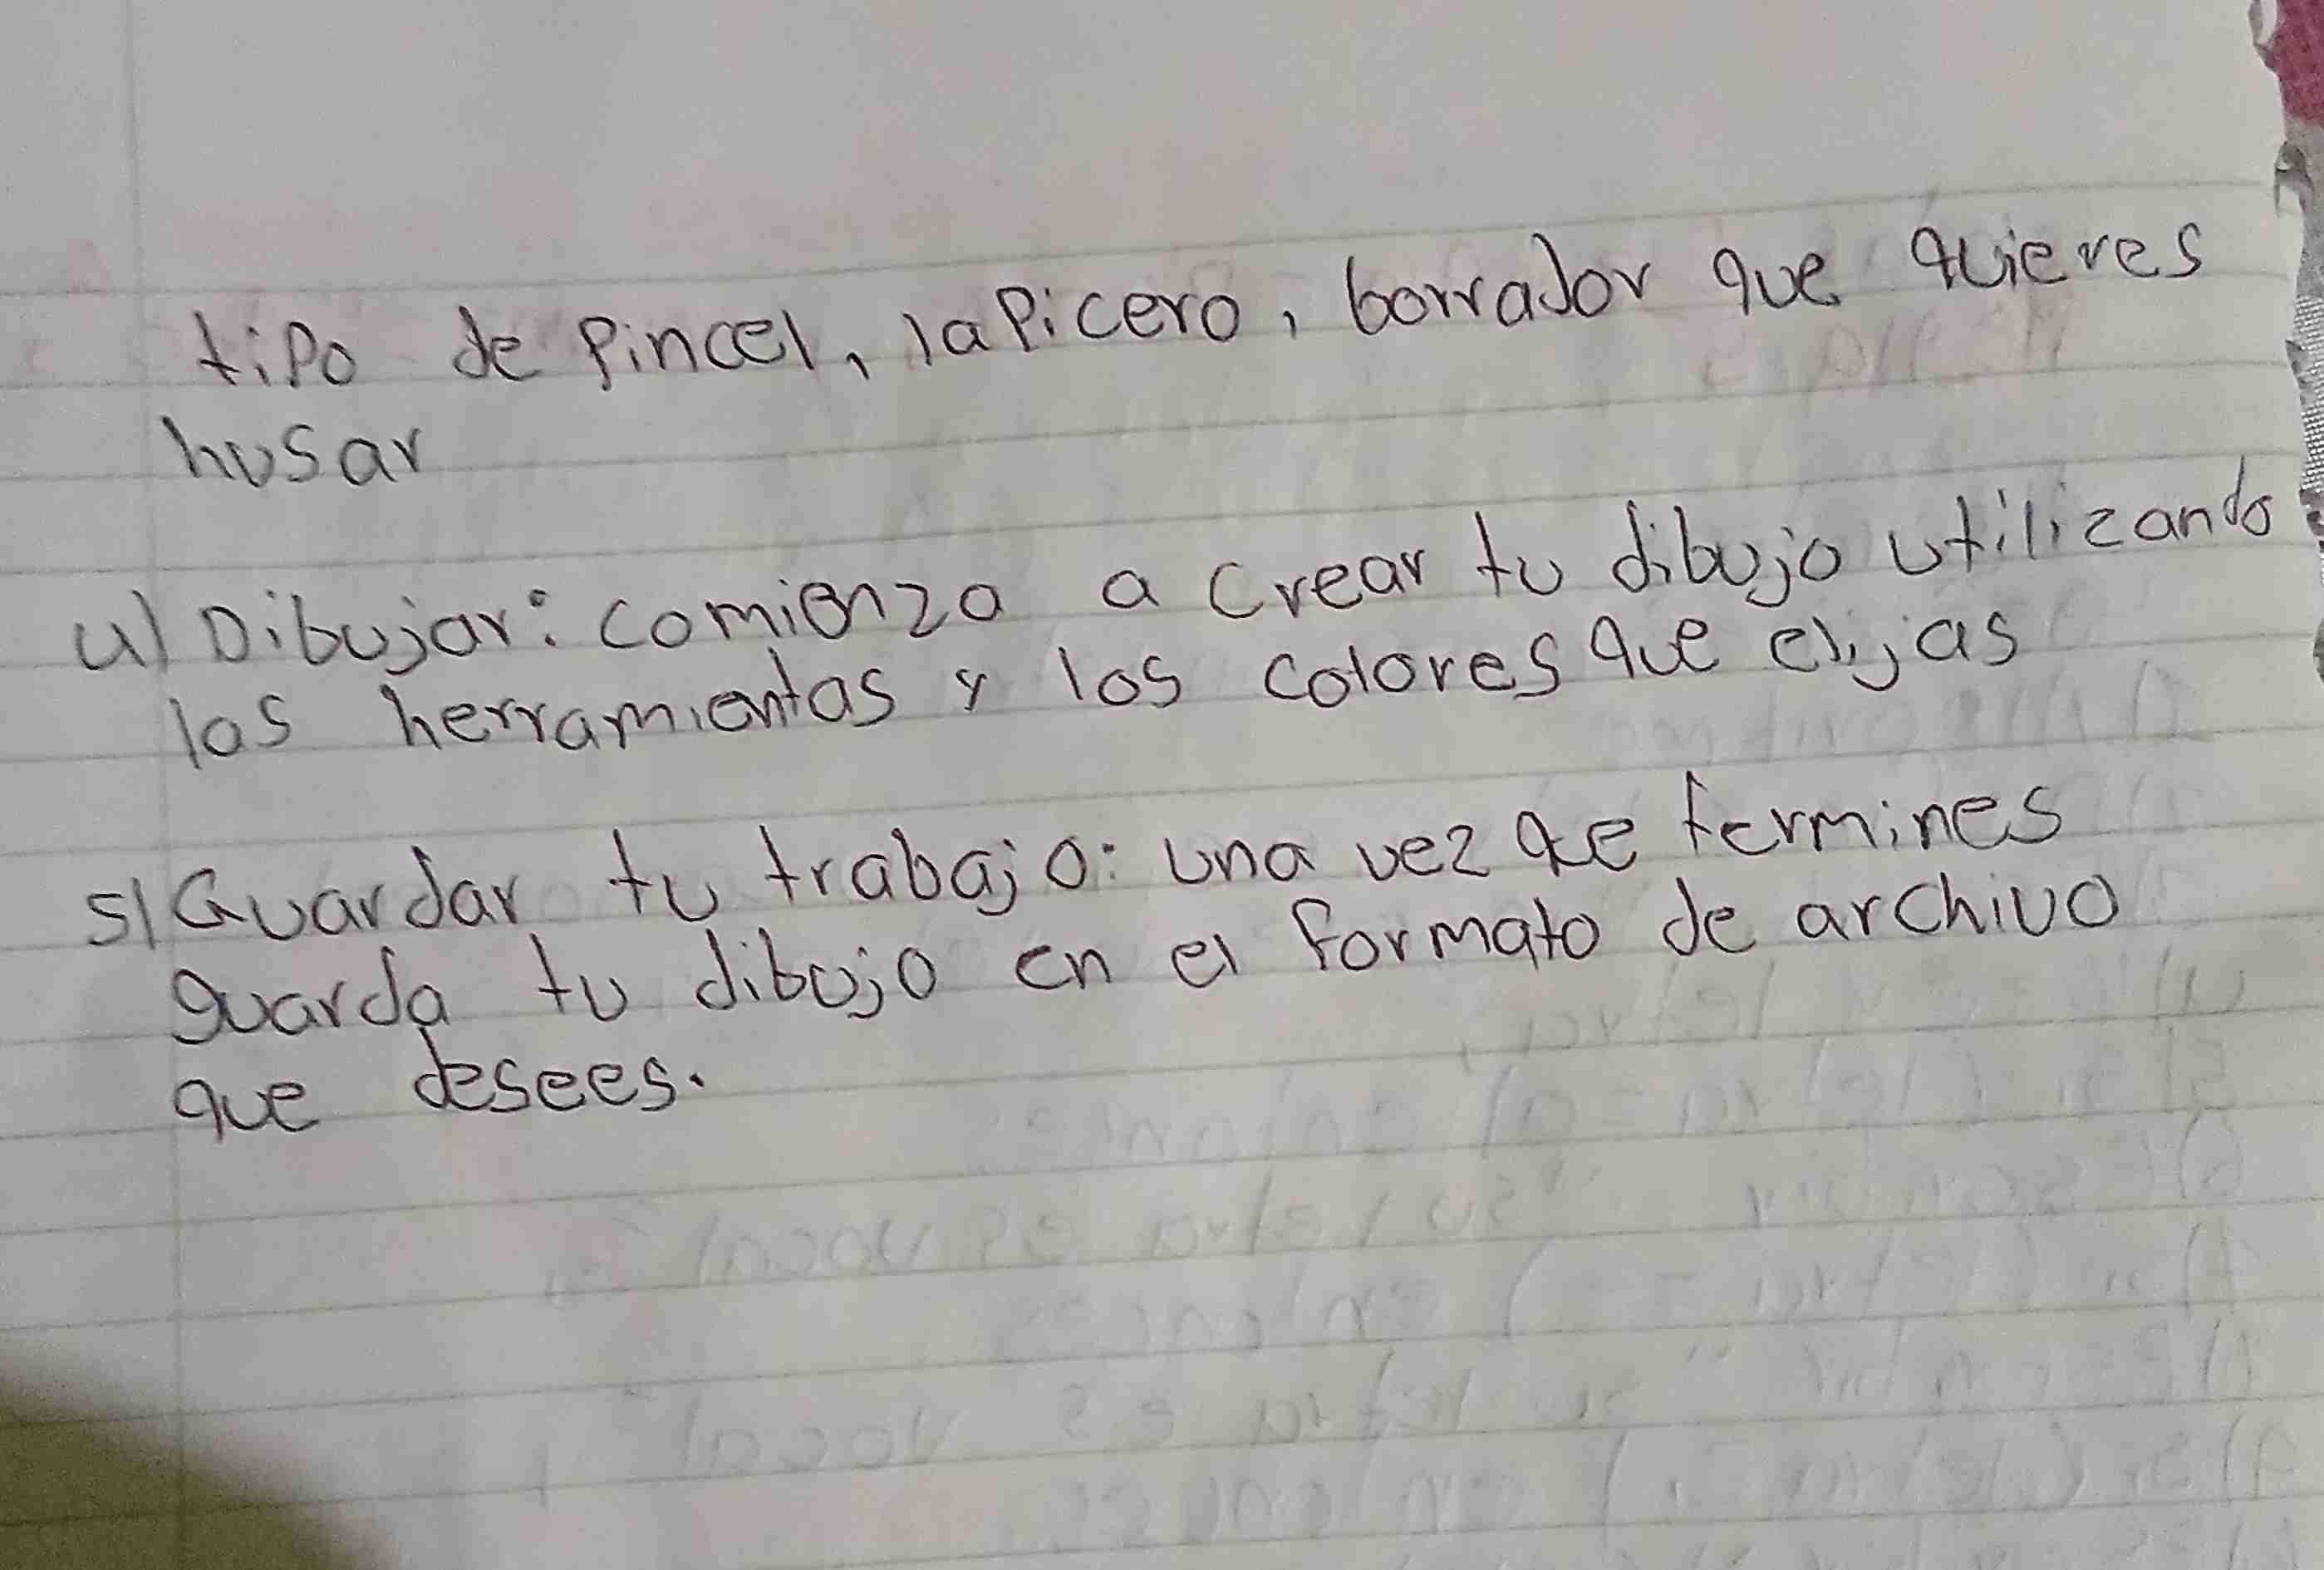 tipo de pincel, lapicero, borrador que quieres
husar
4) Dibujar: comienza a crear tu dibujo utilizando
las herramientas y los colores que elijas
5) Guardar tu trabajo: una vez que termines
guarda tu dibujo en el formato de archivo
que desees.